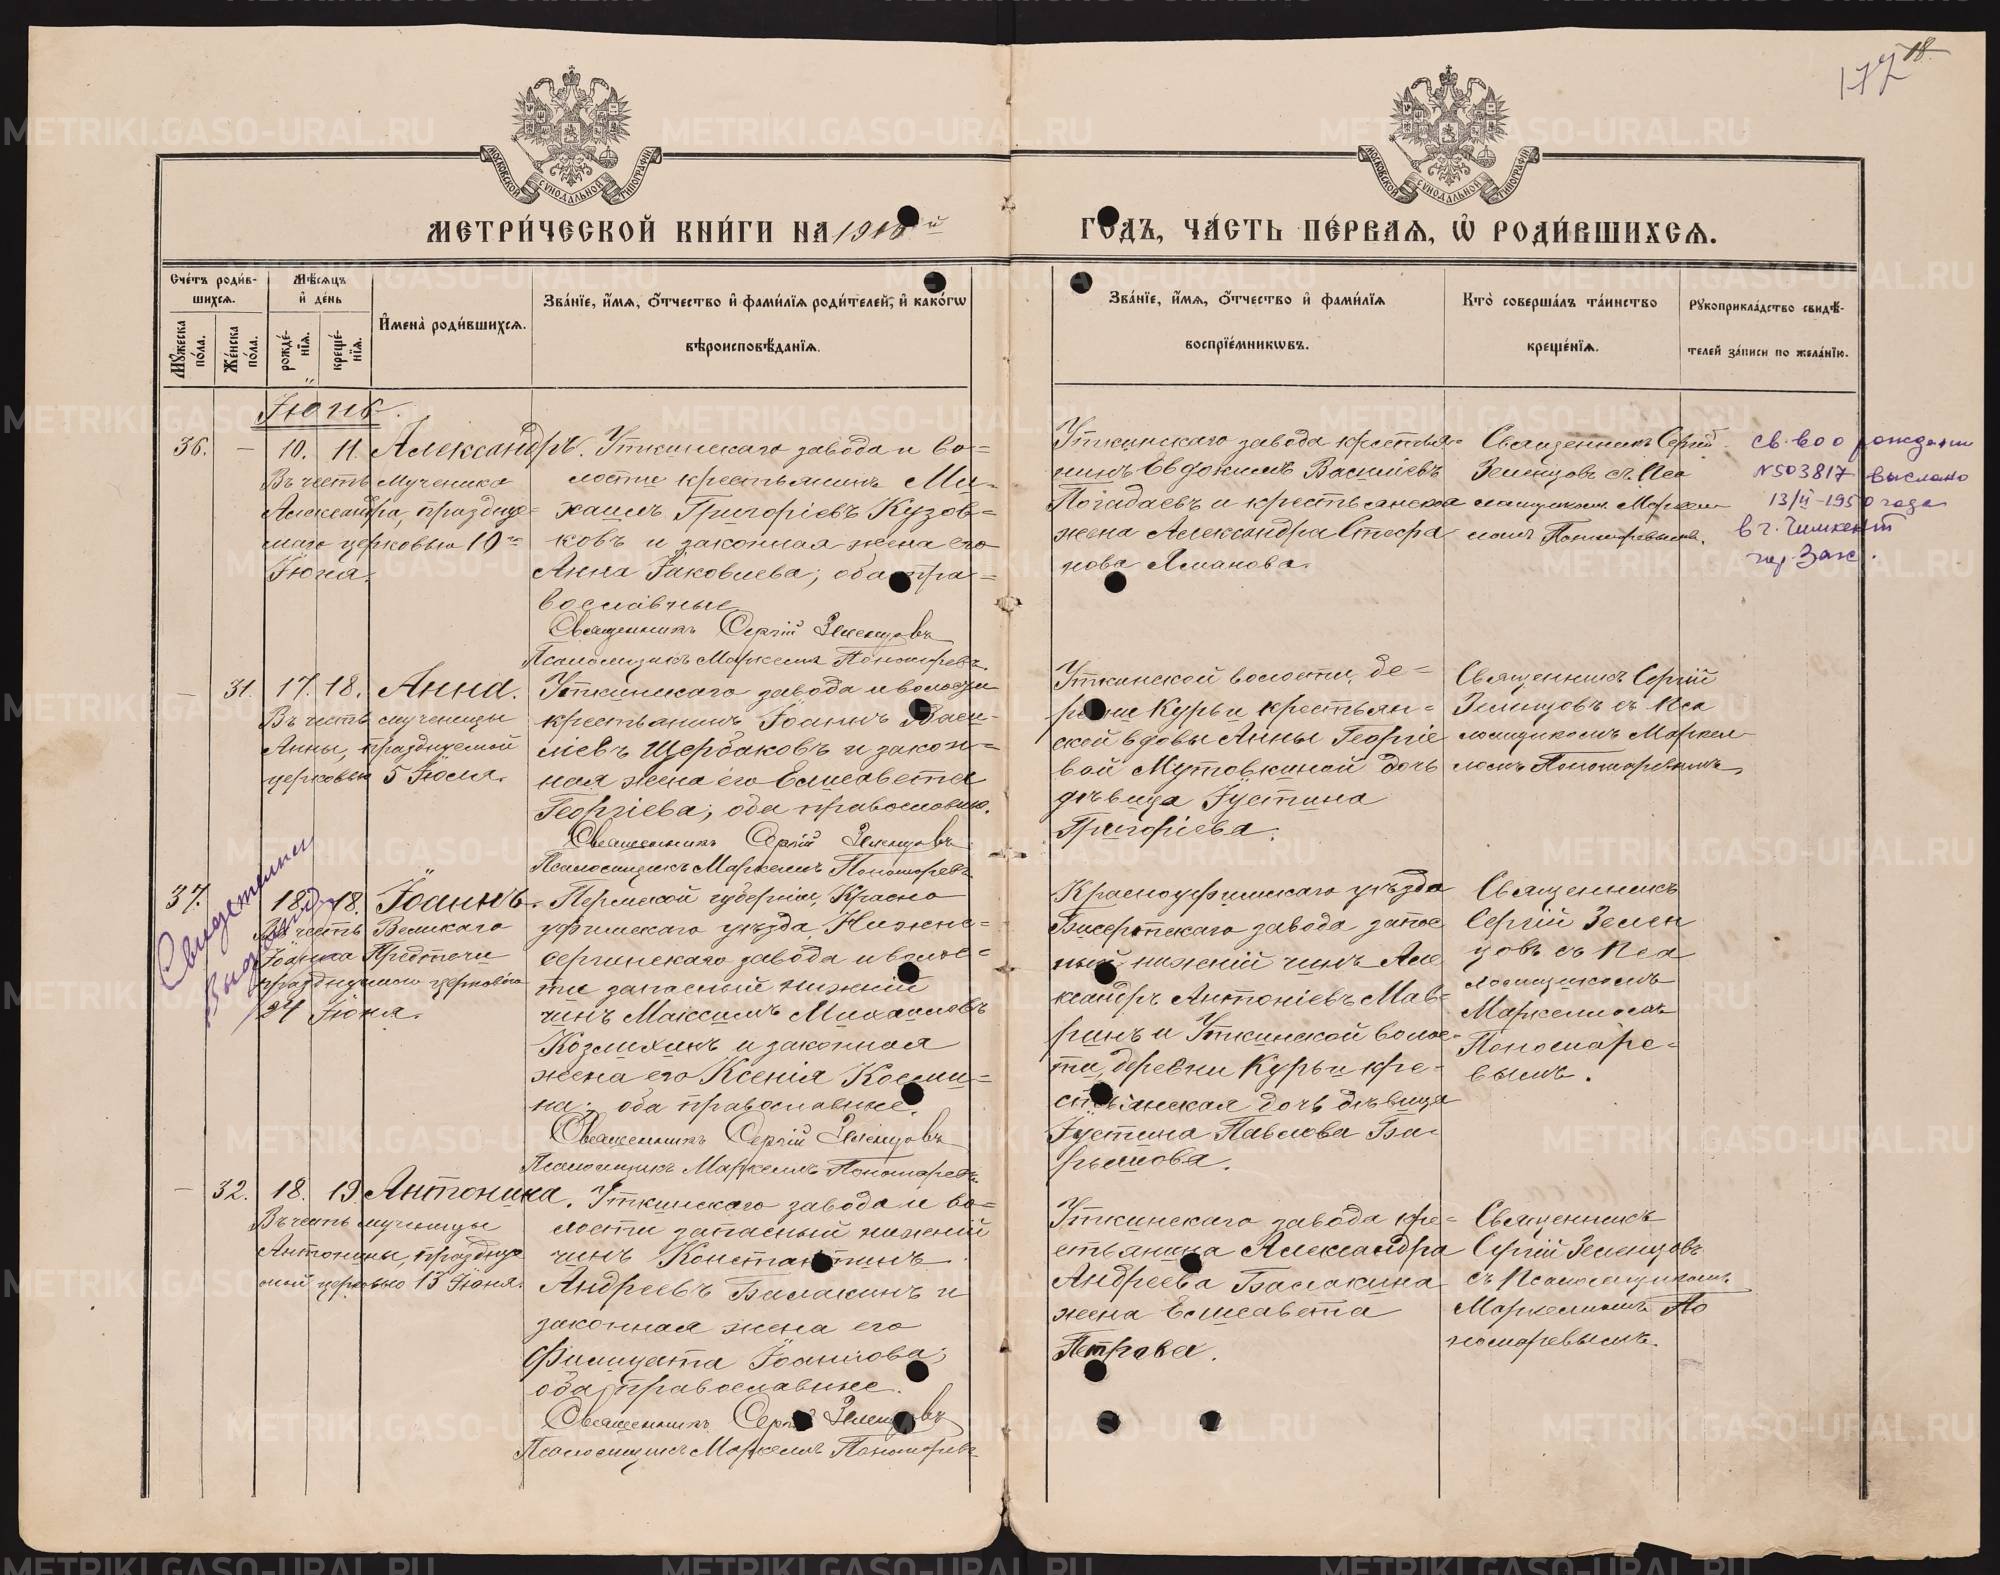 177
18
МОСКОВСКОЙ СѴНОДАЛЬНОЙ ТИПОГРАФІИ
МОСКОВСКОЙ СѴНОДАЛЬНОЙ ТИПОГРАФІИ
МЕТРИ́ЧЕСКОЙ КНИ́ГИ НА 1910й
ГОДЪ, ЧА́СТЬ ПЕ́РВАѦ, Ѡ҆ РОДИ́ВШИХСѦ.
Сче́тъ роди́в-
шихсѧ.
Мꙋ́жеска по́ла.
Же́нска по́ла.
Мѣ́сѧцъ
и҆ де́нь
рожде́-
нїѧ.
креще́-
нїѧ.
И҆мена̀ роди́вшихсѧ.
Зва́нїе, и҆́мѧ, ѻ҆́тчество и҆ фами́лїѧ роди́телей, и҆ како́гѡ
вѣроисповѣ́данїѧ.
Зва́нїе, и҆́мѧ, ѻ҆́тчество и҆ фами́лїѧ
воспрїе́мникѡвъ.
Кто̀ соверша́лъ та́инство
креще́нїѧ.
Рꙋкоприкла́дство свидѣ́-
телей за́писи по жела́нїю.
Іюнь.
36. – 10. 11. Александръ.
Въ честь мученика
Александра, празднуе-
маго церковью 10го
Іюня.
Уткинскаго завода и во-
лости крестьянинъ Ми-
хаилъ Григоріевъ Кузов-
ковъ и законная жена его
Анна Іаковлева; оба пра-
вославные
Священникъ Сергій Земенцовъ
Псаломщикъ Маркеллъ Пономаревъ.
Уткинскаго завода крестья-
нинъ Евдокимъ Василіевъ
Погадаевъ и крестьянская
жена Александра Стефа
нова Ялманова.
Священникъ Сергій
Земенцовъ съ Пса
ломщикомъ Маркел-
ломъ Пономаревымъ.
св-во о рождении
№503817 выслано
13/II-1950 года
в г. Чимкент
– 31. 17. 18. Анна.
Въ честь мученицы
Анны, празднуемой
церковью 5 Іюля.
Уткинскаго завода и волости
крестьянинъ Іоаннъ Васи-
ліевъ Щербаковъ и закон-
ная жена его Елисавета
Георгіева; оба православн.
Священникъ Сергій Земенцовъ
Псаломщикъ Маркеллъ Пономаревъ
Уткинской волости, де-
ревни Курьи крестьян-
ской вдовы Анны Георгіе
вой Мутовкиной дочь
дѣвица Іустина
Григоріева.
Священникъ Сергій
Земенцовъ съ Пса
ломщикомъ Маркел-
ломъ Пономаревымъ.
37. 18. 18. Іоаннъ.
Въ честь Великаго
Іоанна Предтечи
празднуемаго церковію
24 Іюня.
Пермской губерніи, Красно
уфимскаго уѣзда Нижне-
сергинскаго завода и волос-
ти запасный нижній
чинъ Максимъ Михаиловъ
Козлихинъ и законная
жена его Ксенія Косми-
на; оба православные.
Священникъ Сергій Земенцовъ
Псаломщикъ Маркеллъ Пономаревъ.
Красноуфимскаго уѣзда
Бисертскаго завода запас
ный нижній чинъ Але
ксандръ Антоніевъ Мав-
ринъ и Уткинской волос-
ти, деревни Курьи кре-
стьянская дочь дѣвица
Іустина Павлова
Священникъ
Сергій Земен
цовъ съ Пса
ломщикомъ
Маркелломъ
Пономаре-
вымъ.
– 32. 18. 19 Антонина.
Въ честь мученицы
Антонины, праздпуе
мой церковью 13 Іюня.
Уткинскаго завода и во-
лости запасный нижній
чинъ Константинъ
Андреевъ Балакинъ и
законная жена его
Филицата Іоаннова;
оба православные.
Священникъ Сергій Земенцовъ
Псаломщикъ Маркеллъ Пономаревъ
Уткинскаго завода кре-
стьянина Александра
Андреева Балакина
жена Елисавета
Петрова.
Священникъ
Сергій Земенцовъ
съ Псаломщикомъ
Маркелломъ По
номаревымъ.
METRIKI.GASO-URAL.RU